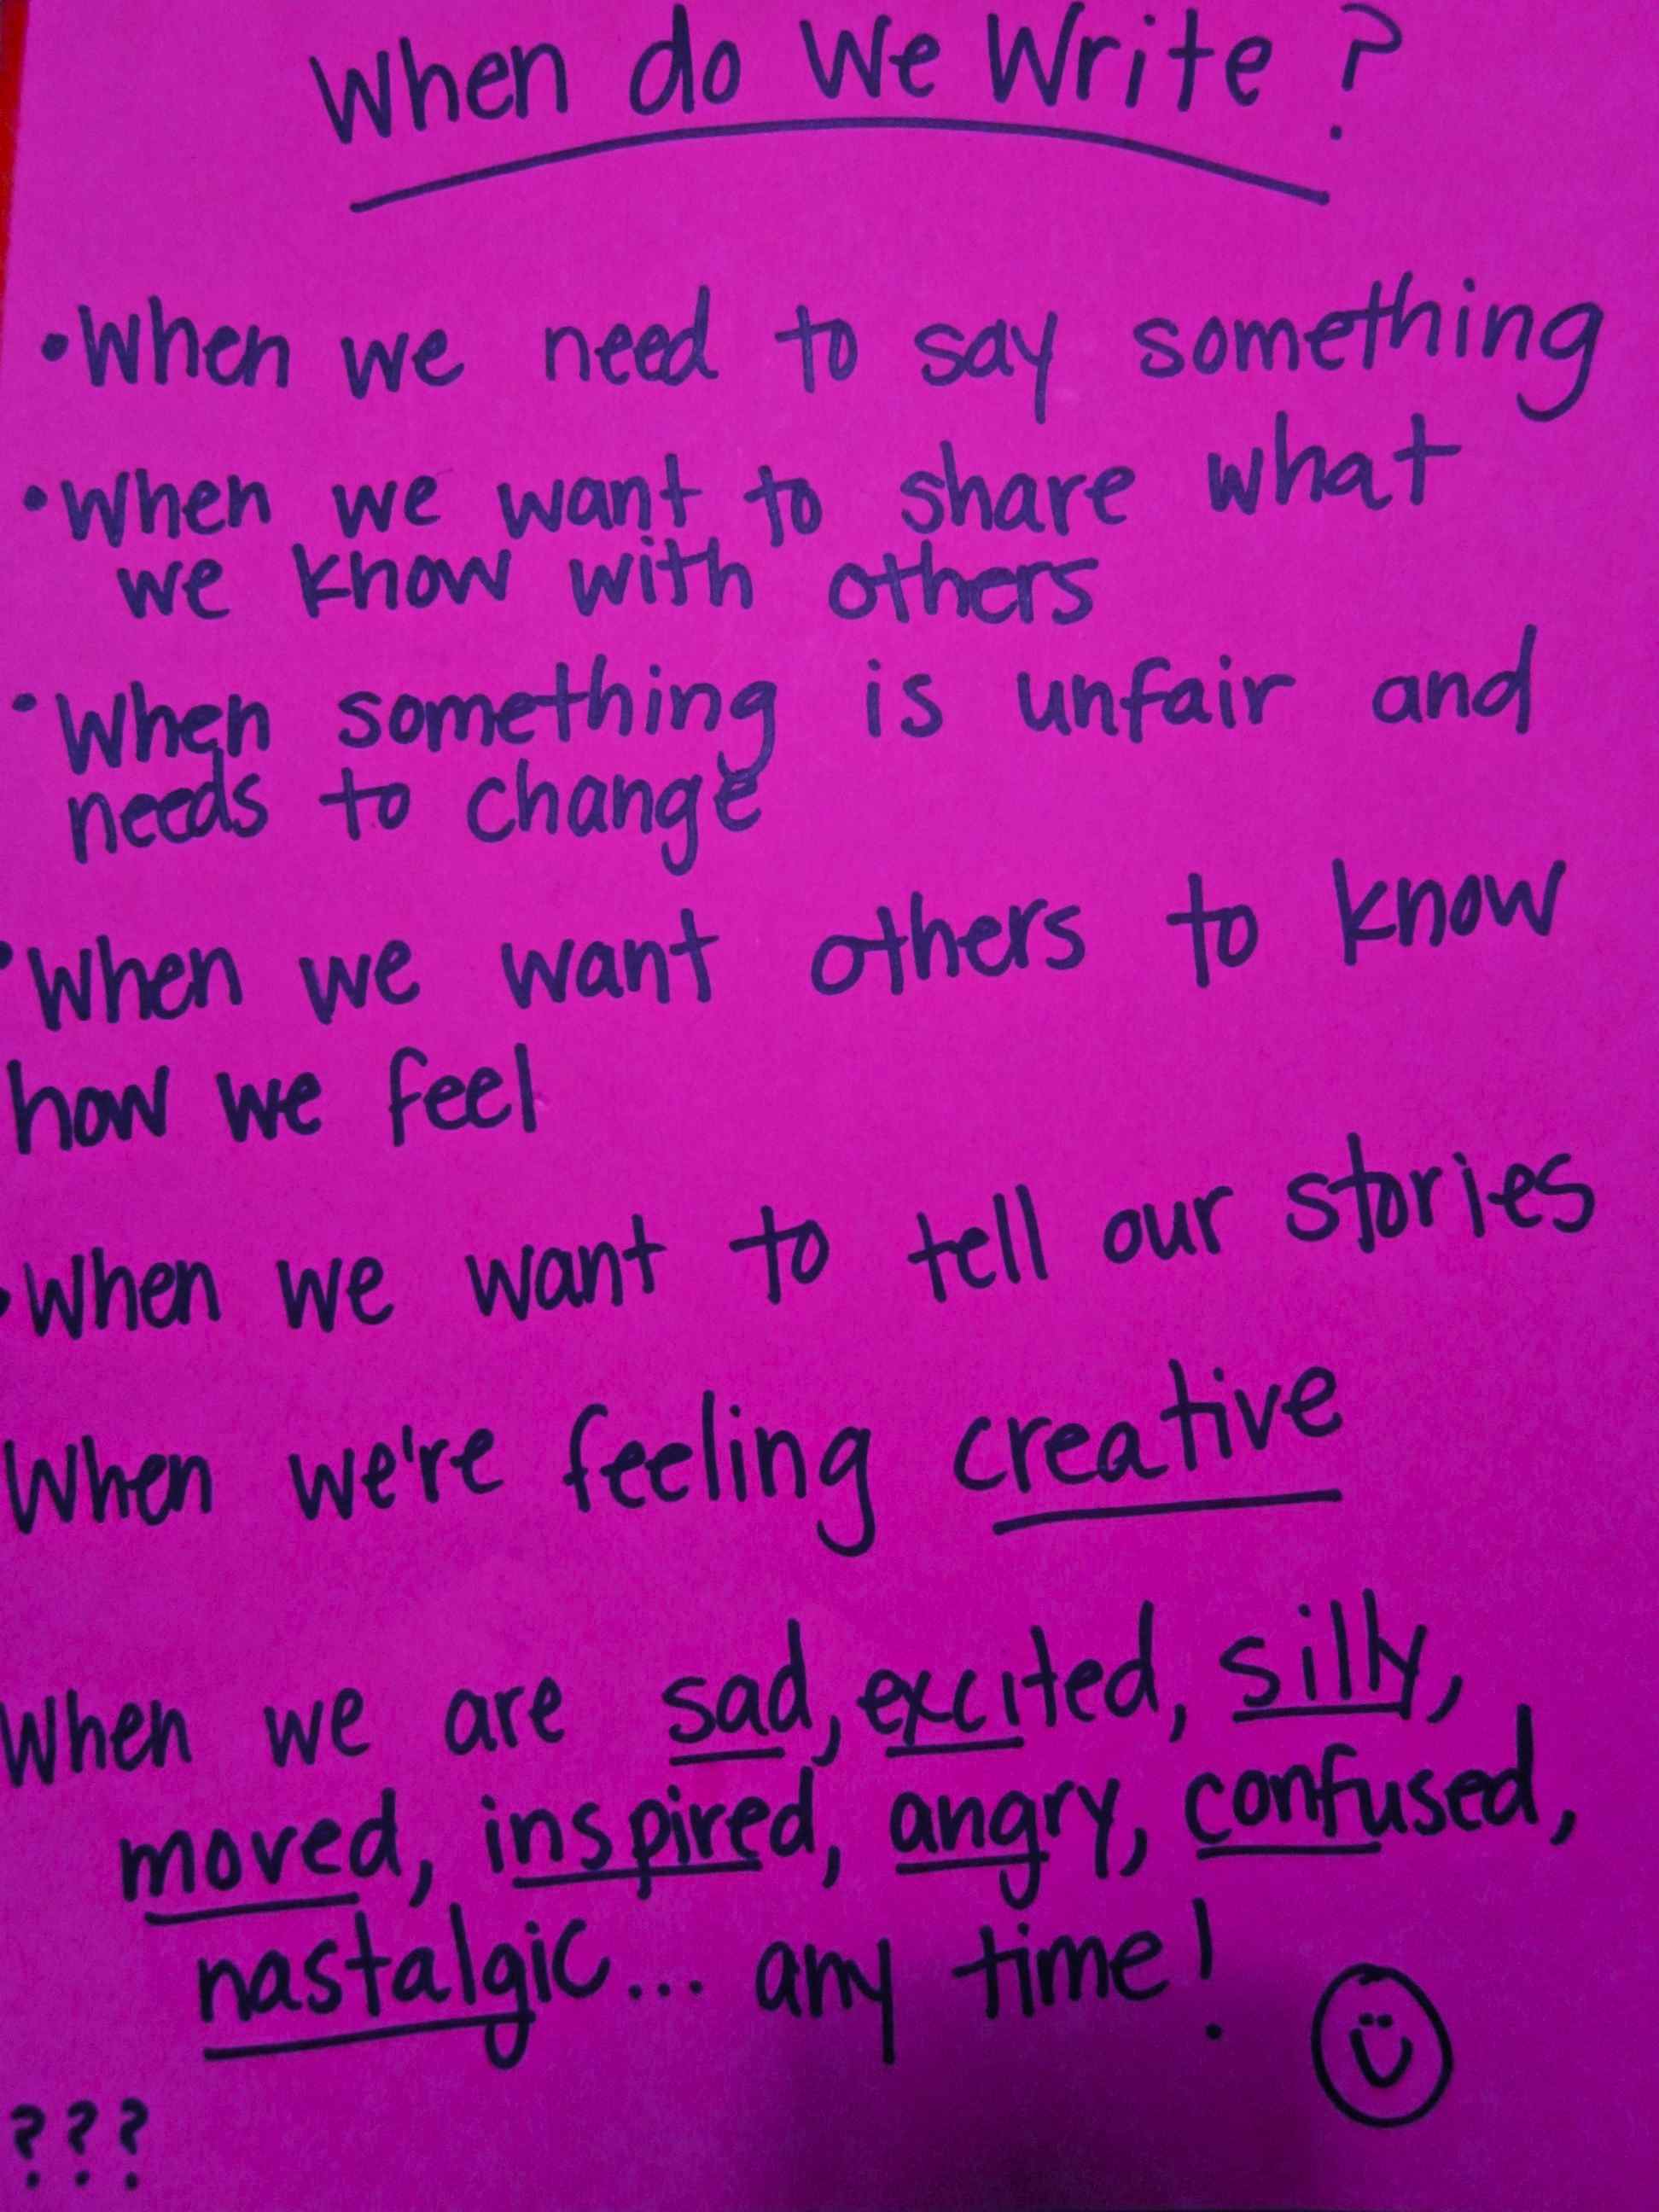 When do We Write?
•When we need to say something
•When we want to share what
we know with others
•When something is unfair and
needs to change
•When we want others to know
how we feel
•When we want to tell our stories
When we're feeling creative
When we are sad, excited, silly,
moved, inspired, angry, confused,
nastalgic... any time!
???